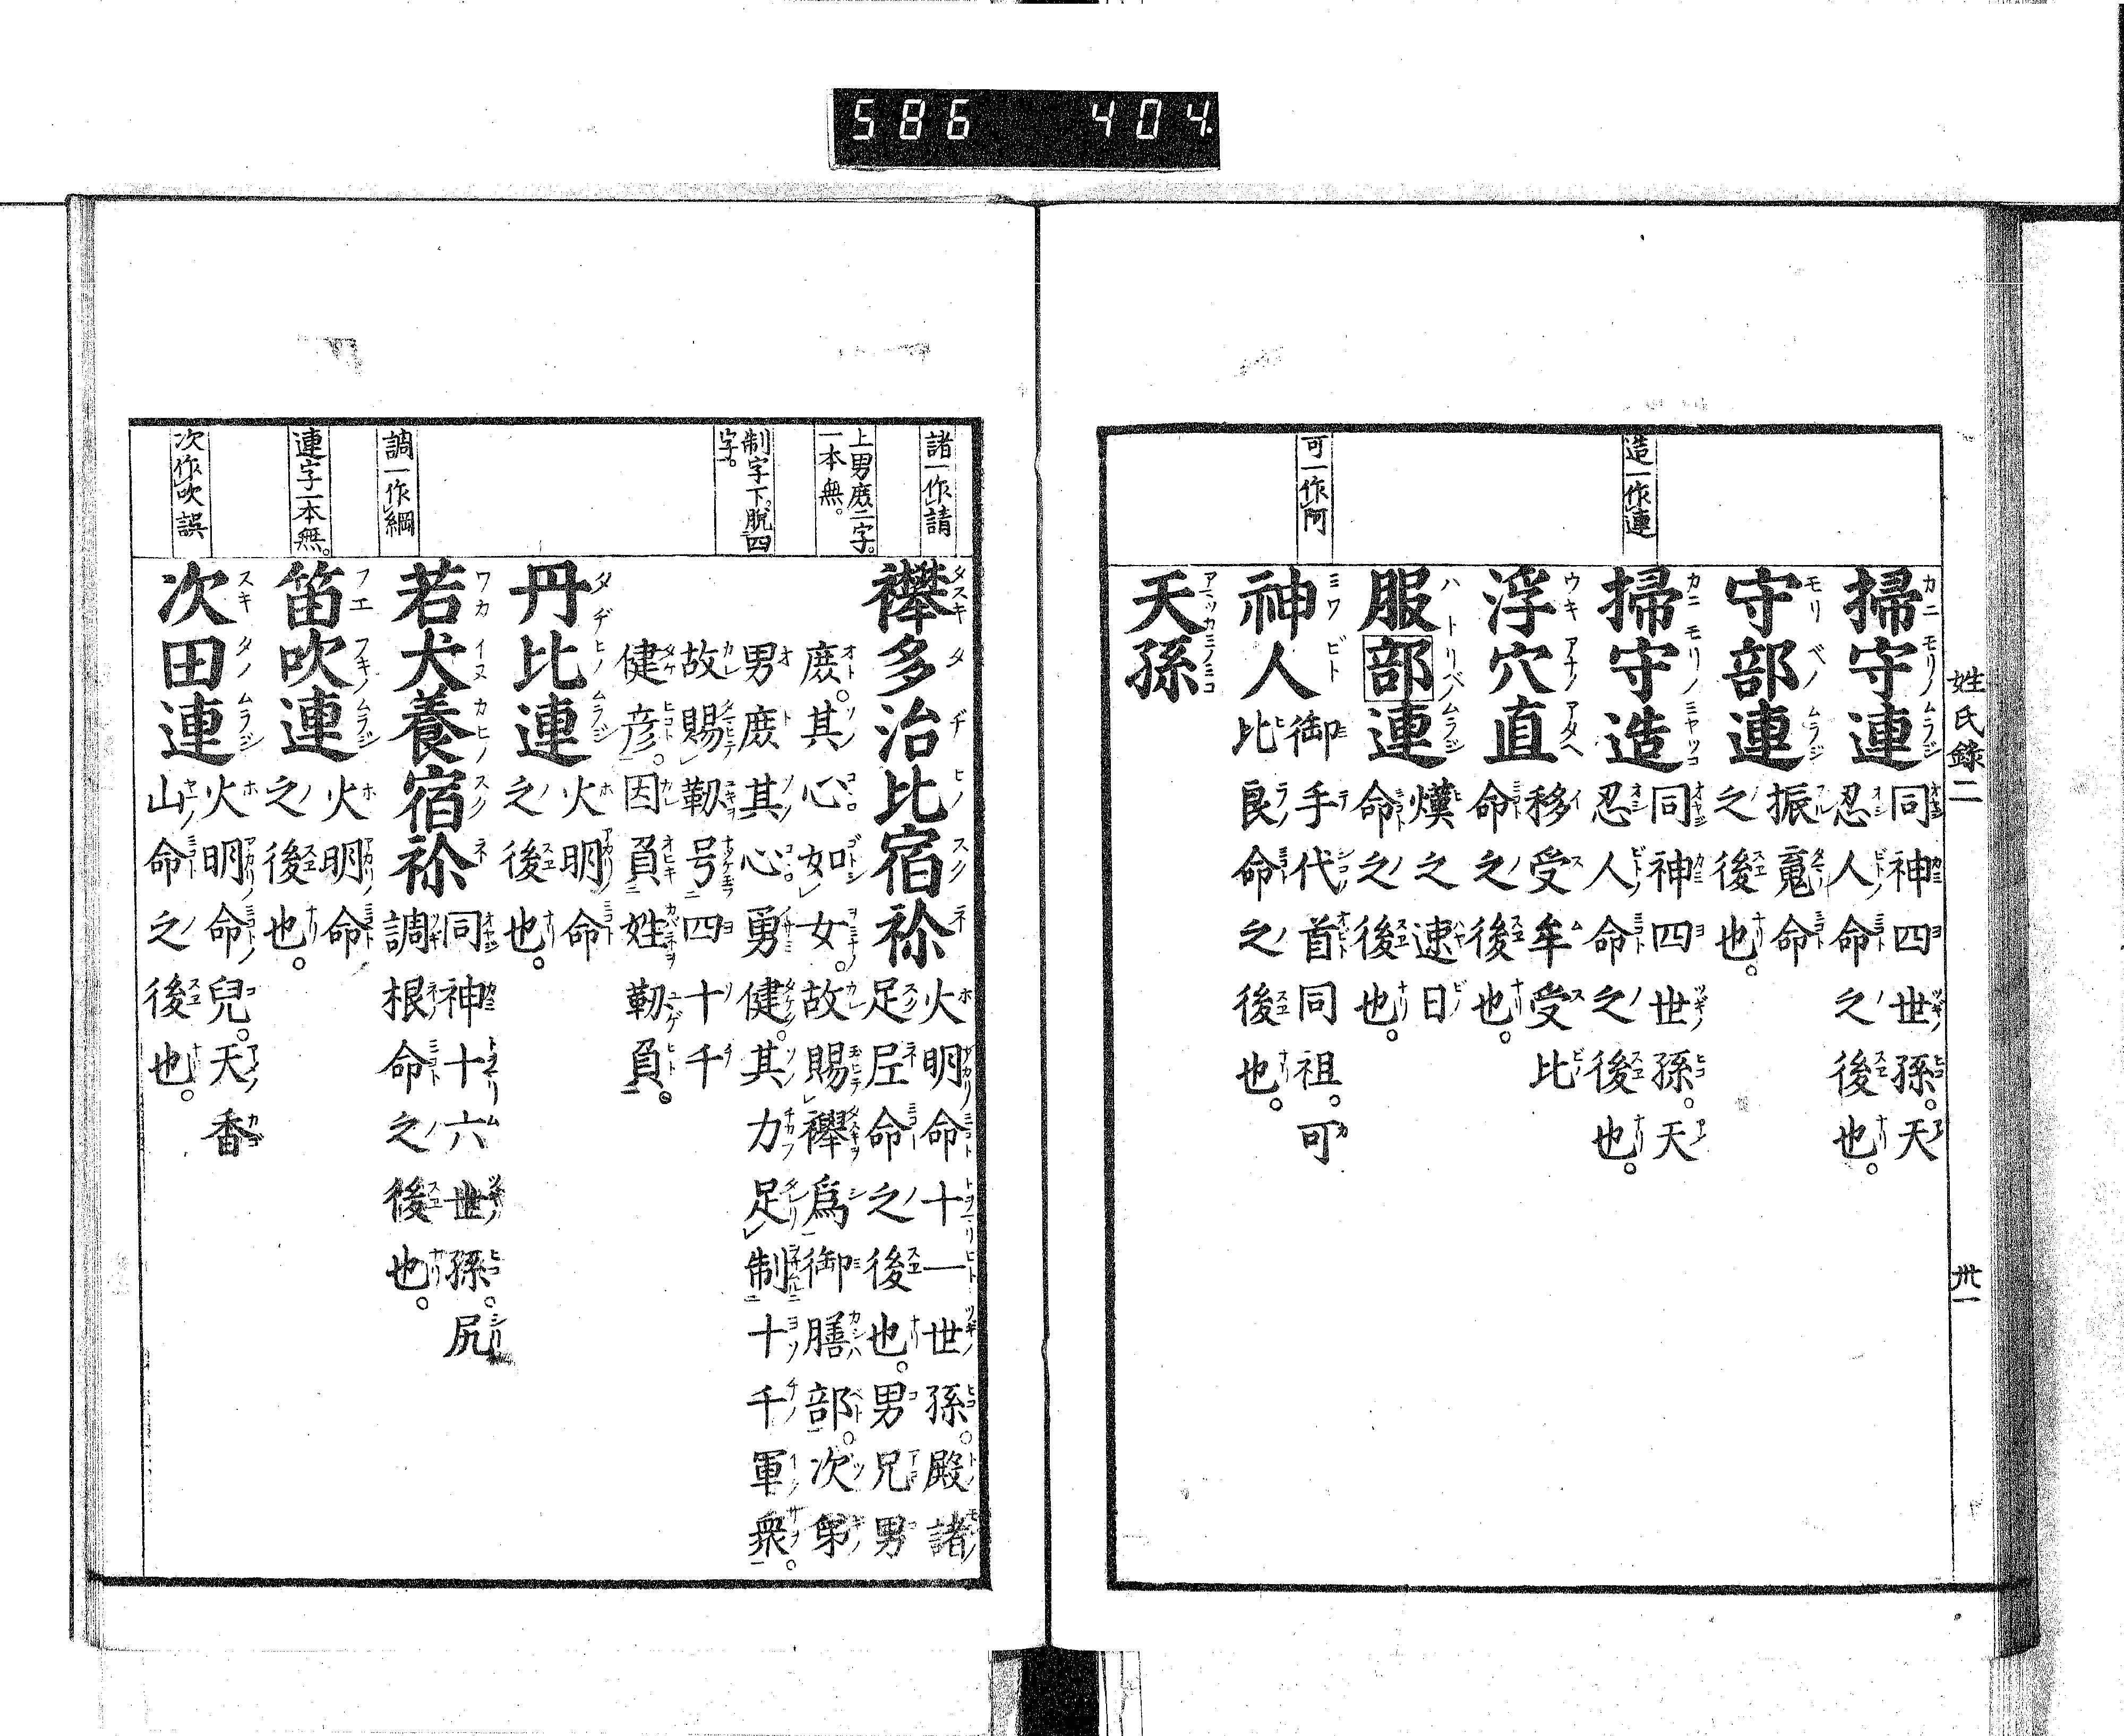 586 404.
姓氏錄二
卅一
造一作連
可一作阿
掃守連
同神四世孫。天
忍人命之後也。
守部連
振魂命
之後也。
掃守造
同神四世孫。天
忍人命之後也。
浮穴直
移受牟受比
命之後也。
服部連
熯之速日
命之後也。
神人
御手代首同祖。可
比良命之後也。
天孫
諸一作請
上男庶二字。
一本無。
制字下。脫四
字。
調一作綱
連字一本無。
次作吹誤
襷多治比宿祢
火明命十一世孫。殿諸
足尼命之後也。男兄男
庶。其心如女。故賜襷爲御膳部。次弟
男庶其心勇健。其力足制十千軍衆。
故賜靭号四十千
健彦。因負姓靭負。
丹比連
火明命
之後也。
若犬養宿祢
同神十六世孫。尻
調根命之後也。
笛吹連
火明命
之後也。
次田連
火明命兒。天香
山命之後也。